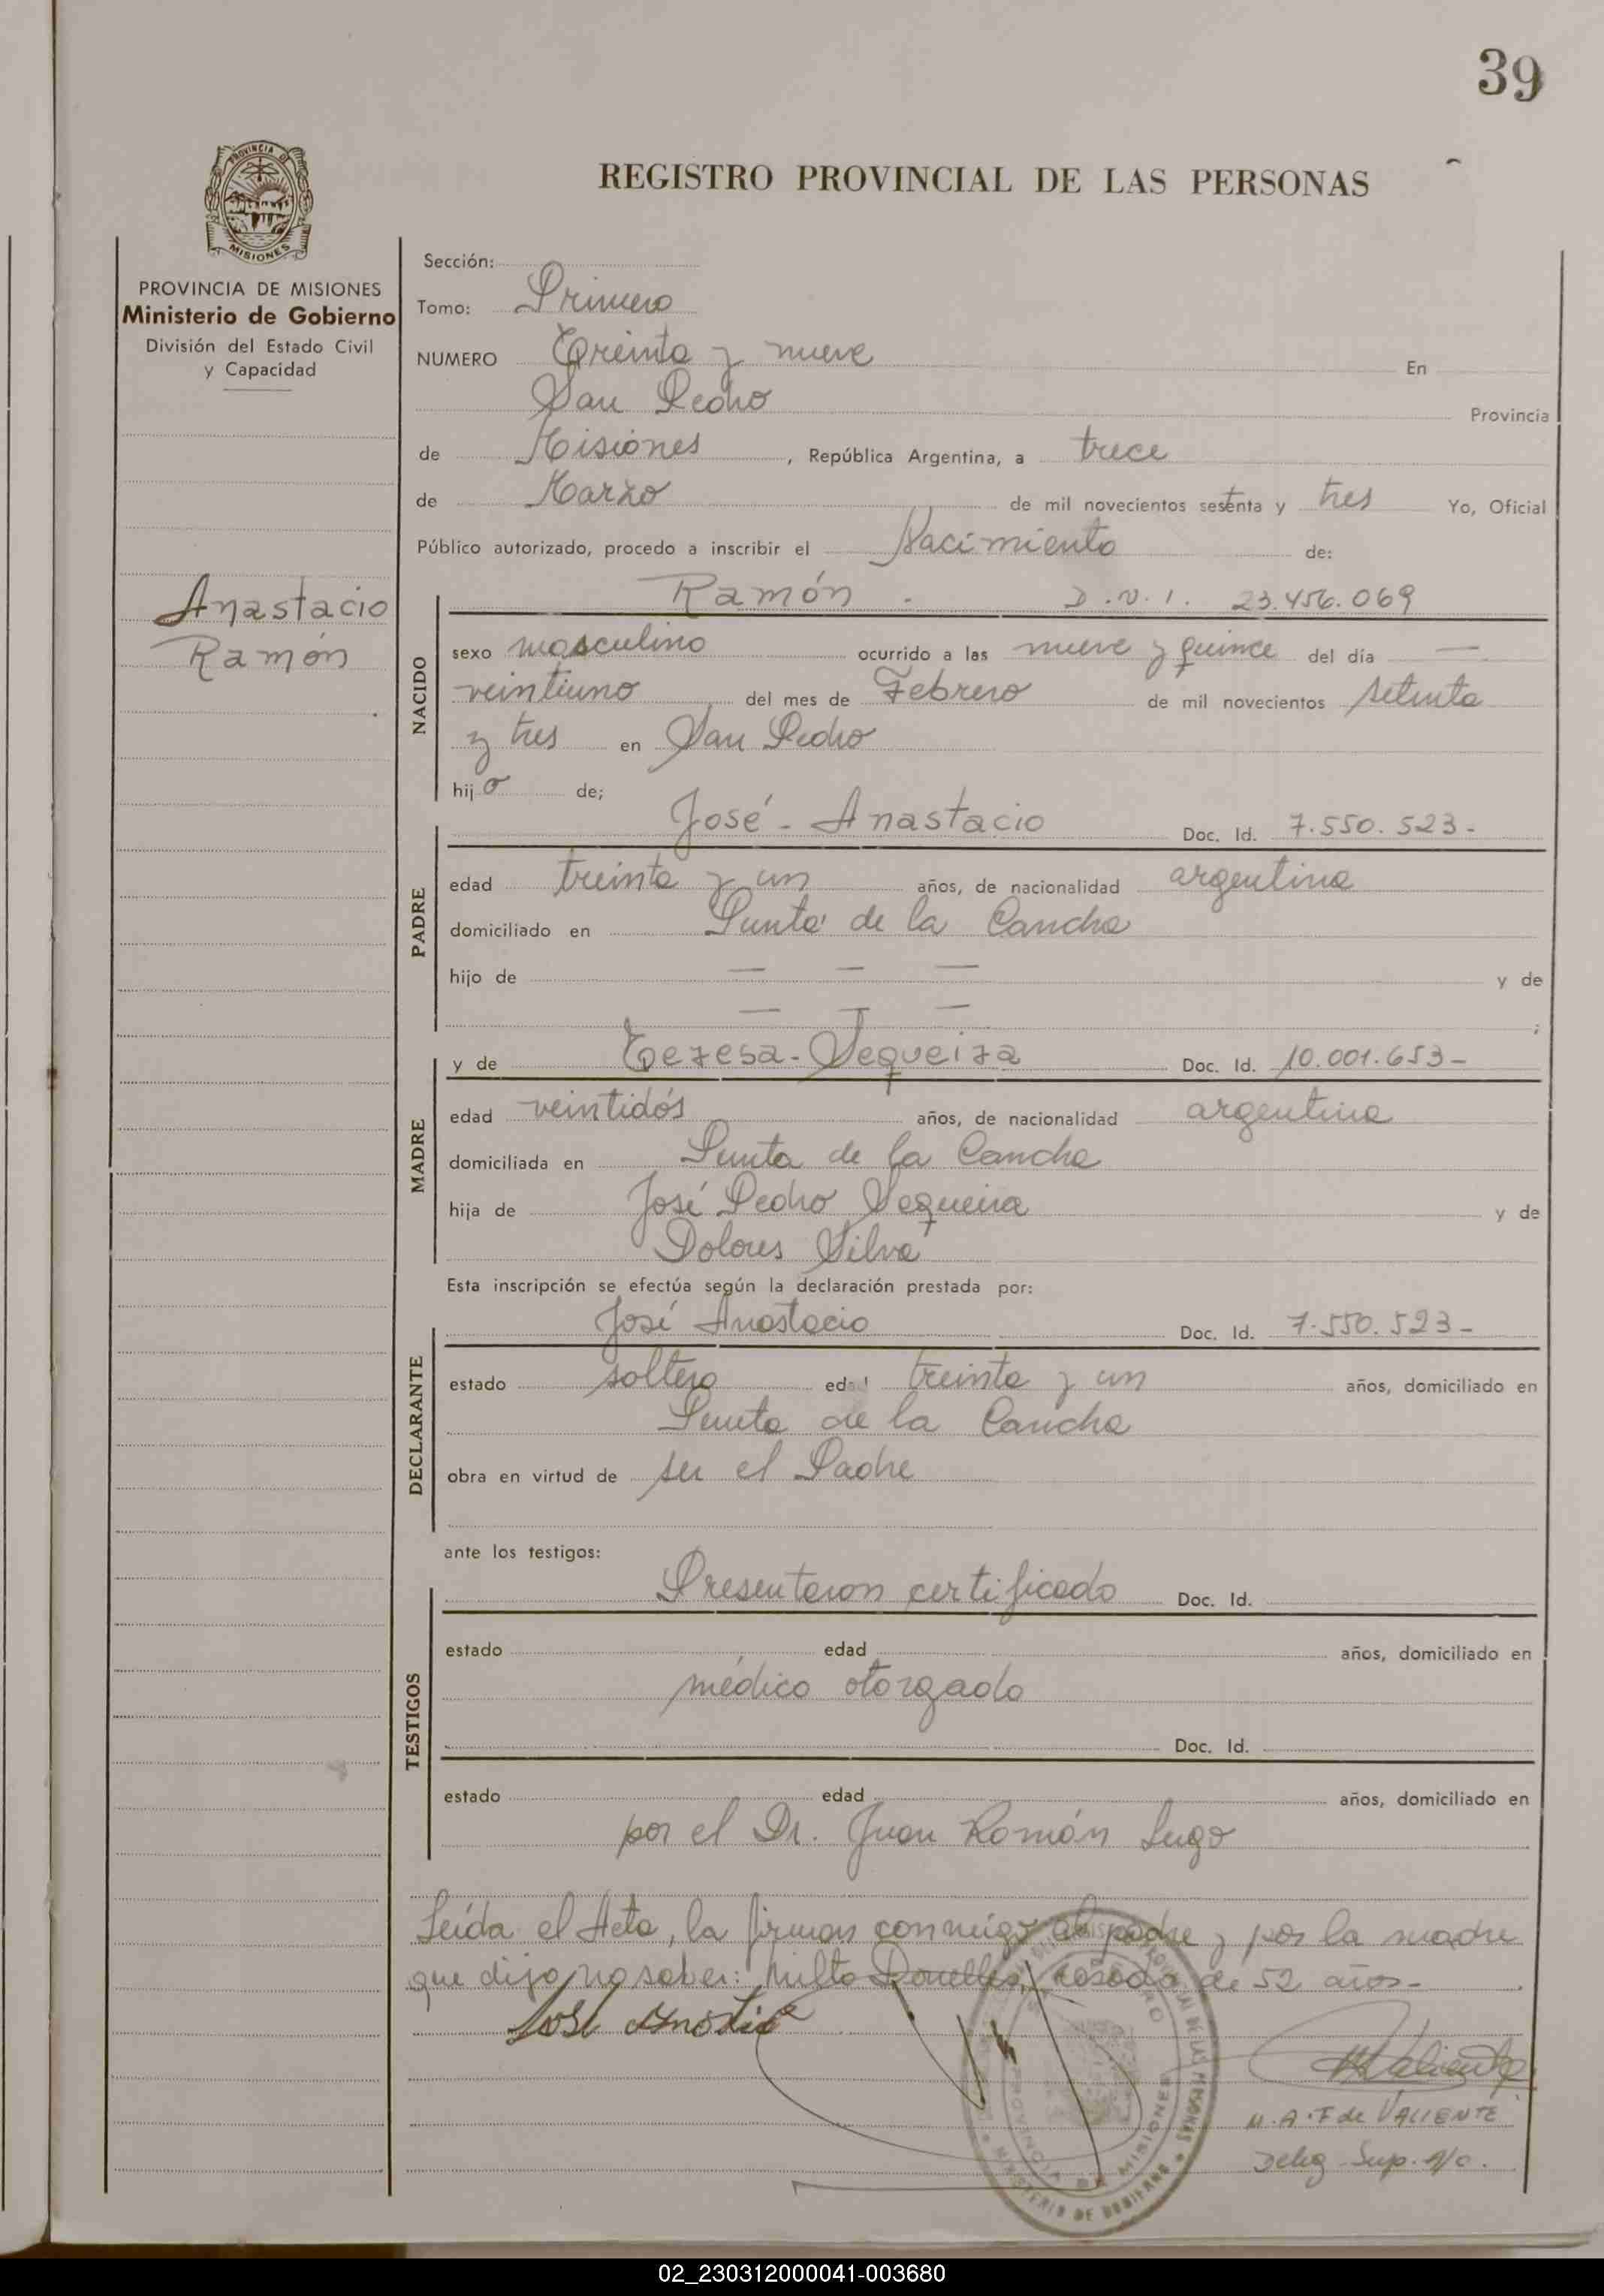 39
REGISTRO PROVINCIAL DE LAS PERSONAS
PROVINCIA DE
MISIONES
PROVINCIA DE MISIONES
Ministerio de Gobierno
División del Estado Civil
y Capacidad
Anastacio
Ramón
Sección:
Tomo: Primero
NUMERO Treinta y nueve En
San Pedro Provincia
de Misiones , República Argentina, a trece
de Marzo de mil novecientos setenta y tres Yo, Oficial
Público autorizado, procedo a inscribir el Nacimiento de:
NACIDO
Ramón - D.N.I. 23.456.069
sexo masculino ocurrido a las nueve y quince del día —
veintiuno del mes de Febrero de mil novecientos setenta
y tres en San Pedro
hijo de;
PADRE
José - Anastacio Doc. Id. 7.550.523-
edad treinta y un años, de nacionalidad argentina
domiciliado en Punta de la Cancha
hijo de — — — y de
— — — ;
MADRE
y de Teresa - Sequeira Doc. Id. 10.001.653-
edad veintidós años, de nacionalidad argentina
domiciliada en Punta de la Cancha
hija de José Pedro Sequeira y de
Dolores Silva
Esta inscripción se efectúa según la declaración prestada por:
DECLARANTE
José Anastacio Doc. Id. 7.550.523-
estado soltero edad treinta y un años, domiciliado en
Punta de la Cancha
obra en virtud de ser el Padre
ante los testigos:
TESTIGOS
Presentaron certificado Doc. Id.
estado edad años, domiciliado en
médico otorgado
Doc. Id.
estado edad años, domiciliado en
por el Dr. Juan Román Lugo
Leída el Acta, la firman conmigo el padre y por la madre
que dijo no saber: Milto casado de 52 años-
José
Valiente
M.A.F de VALIENTE
Deleg. Sup. a/c.
MINISTERIO DE GOBIERNO
PROVINCIA DE MISIONES
02_230312000041-003680